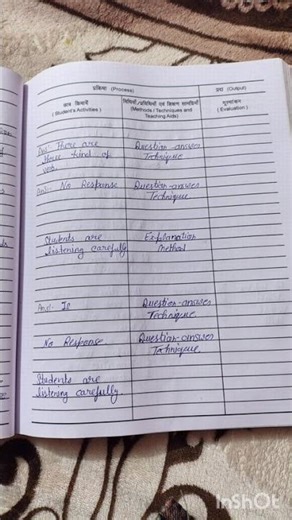 प्रक्रिया (Process)
प्रदा (Output)
छात्र क्रियायें
( Student's Activities )
विधियाँ/प्रविधियाँ एवं शिक्षण सामग्रियाँ
(Methods / Techniques and
Teaching Aids)
मूल्यांकन
( Evaluation )
Ans:- There are
three kind of
verb.
Question-answer
Technique
Ans:- No Response
Question-answer
Technique
Students are
listening carefully
Explanation
Method
Ans:- Is
Question-answer
Technique
No Response
Question-answer
Technique.
Students are
listening carefully.
InShOt